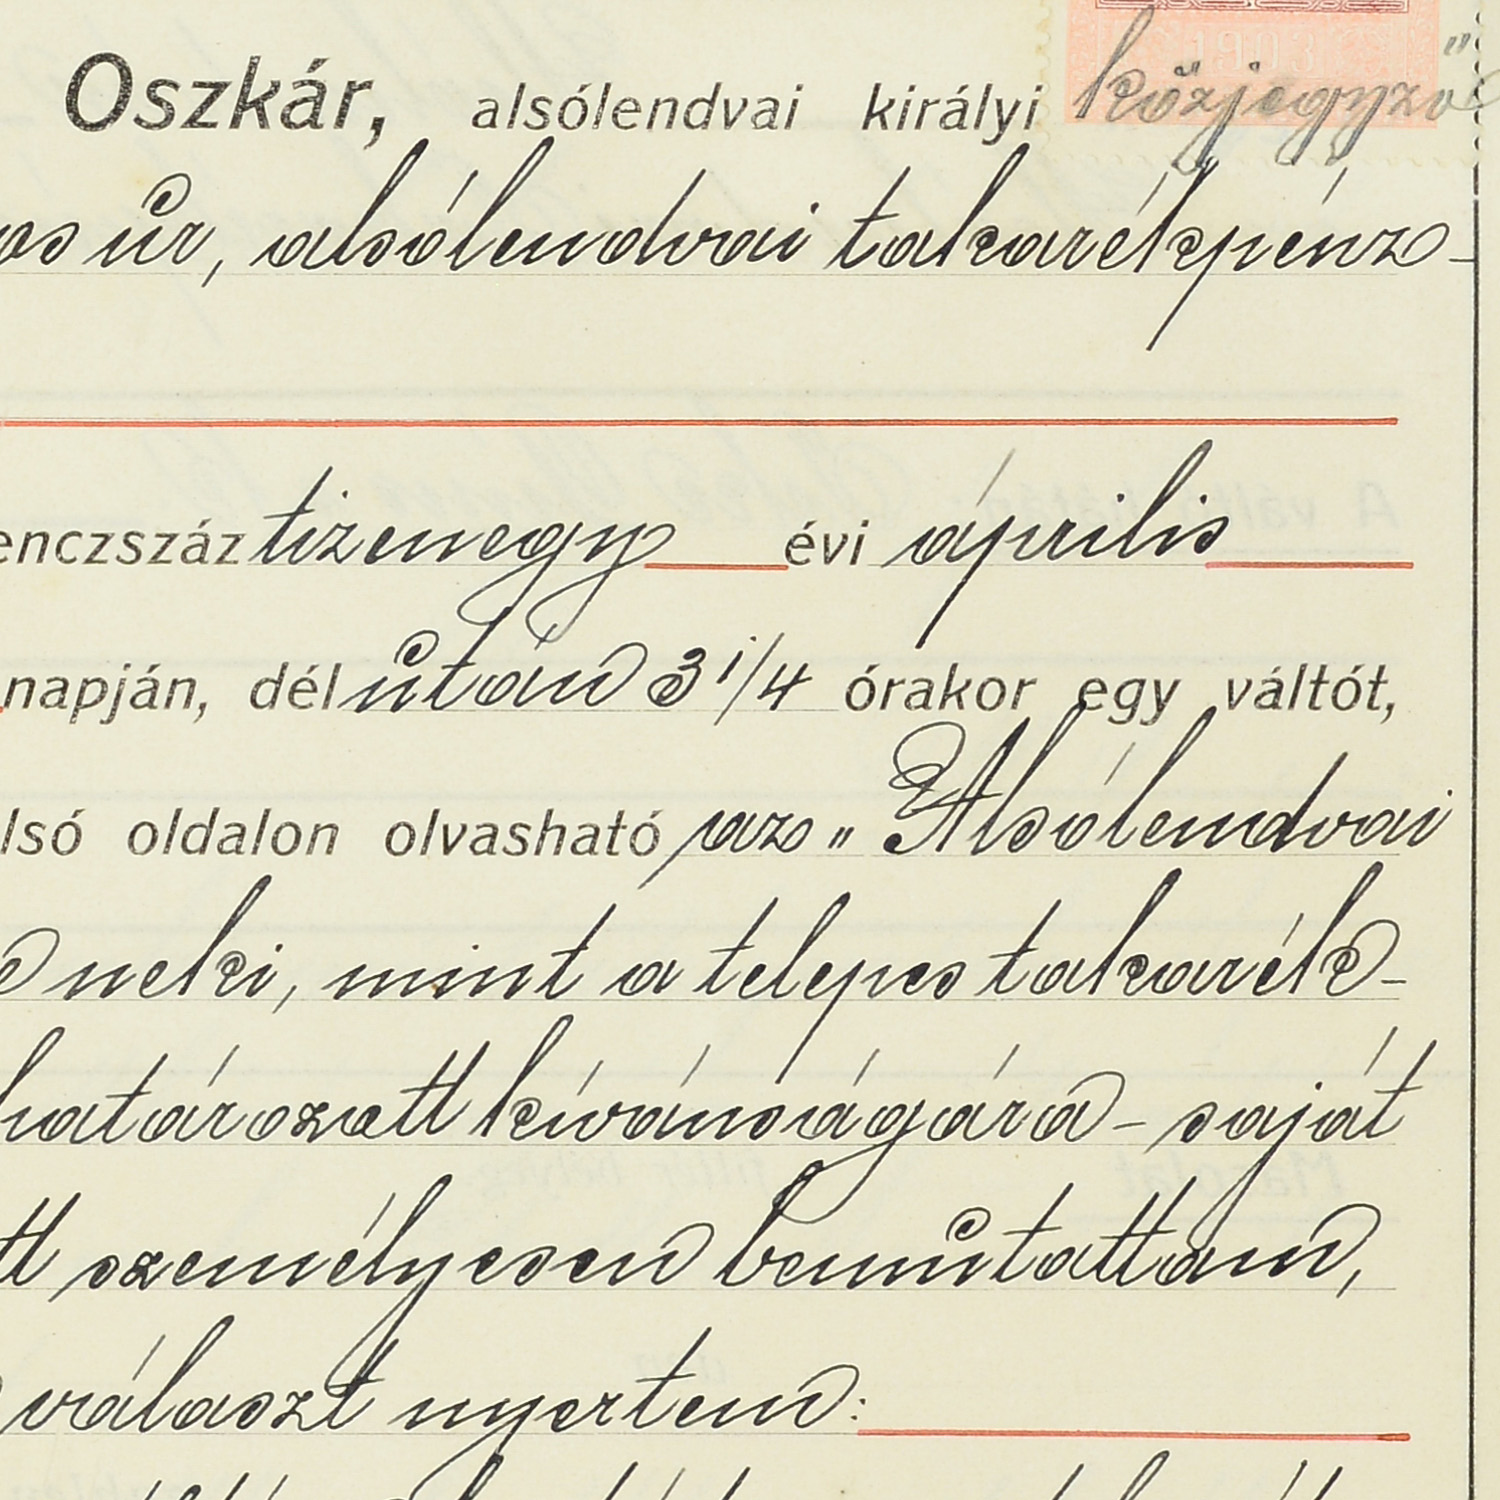 Oszkár, alsólendvai királyi közjegyző
úr, alsólendvai takarékpénz-
enczszáz tizenegy évi április
napján, dél után 3 1/4 órakor egy váltót,
lsó oldalon olvasható az „Alsólendvai
neki, mint a telepes takarék-
határozott kívánságára - saját
tt személyesen bemutattam,
választ nyertem: